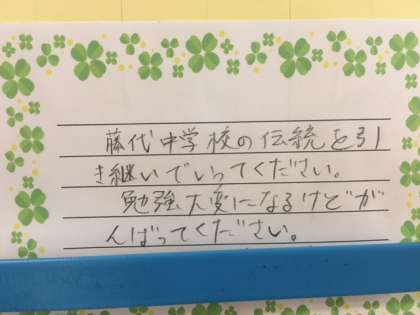 藤代中学校の伝統を引
き継いでいってください。
勉強大変になるけどが
んばってください。